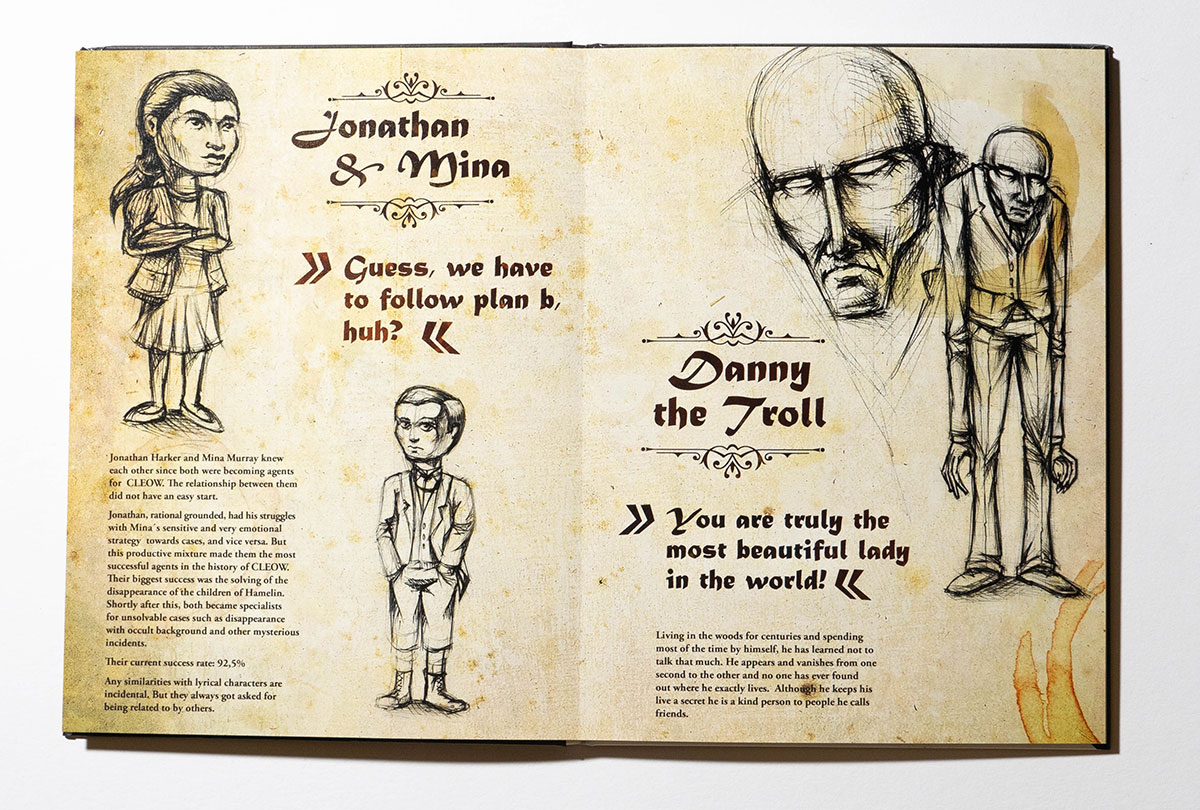 Jonathan
& Mina
» Guess, we have
to follow plan b,
huh? «
Jonathan Harker and Mina Murray knew
each other since both were becoming agents
for CLEOW. The relationship between them
did not have an easy start.
Jonathan, rational grounded, had his struggles
with Mina´s sensitive and very emotional
strategy towards cases, and vice versa. But
this productive mixture made them the most
successful agents in the history of CLEOW.
Their biggest success was the solving of the
disappearance of the children of Hamelin.
Shortly after this, both became specialists
for unsolvable cases such as disappearance
with occult background and other mysterious
incidents.
Their current success rate: 92,5%
Any similarities with lyrical characters are
incidental. But they always got asked for
being related to by others.
Danny
the Troll
» You are truly the
most beautiful lady
in the world! «
Living in the woods for centuries and spending
most of the time by himself, he has learned not to
talk that much. He appears and vanishes from one
second to the other and no one has ever found
out where he exactly lives. Although he keeps his
live a secret he is a kind person to people he calls
friends.